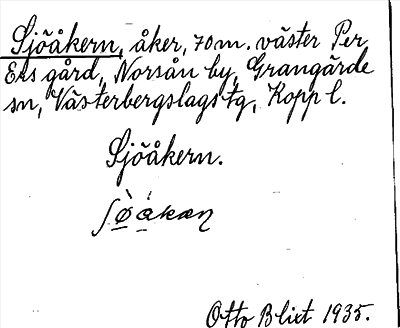 Sjöåkern, åker, 70 m. väster Per
Ers gård, Norsån by, Grangärde
sn, Västerbergslags tg, Kopp l.
Sjöåkern.
ʃø̀ ákæn
Otto Blixt 1935.